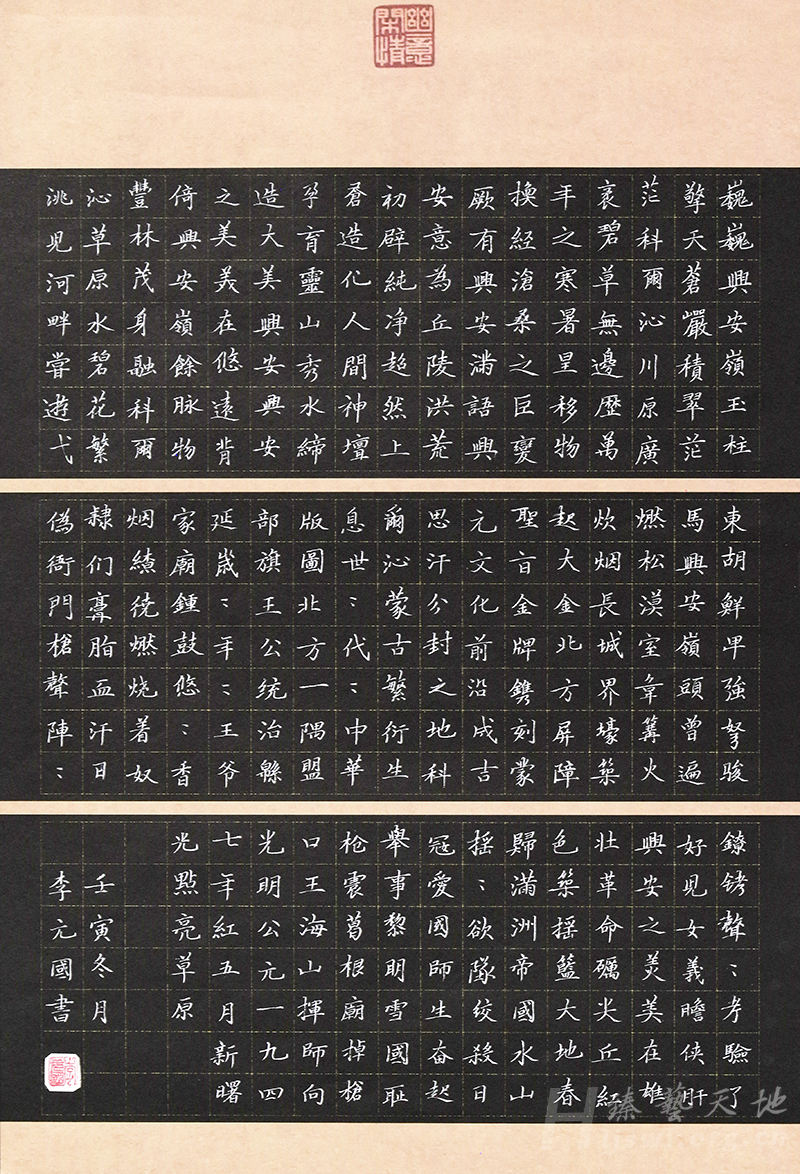 幽意閑情
巍巍興安嶺玉柱
擎天蒼巖積翠茫
茫科爾沁川原廣
袤碧草無邊歷萬
年之寒暑星移物
換經滄桑之巨變
厥有興安滿語興
安意為丘陵洪荒
初辟純净超然上
蒼造化人間神壇
孕育靈山秀水締
造大美興安興安
之美美在悠遠背
倚興安嶺餘脉物
豐林茂身融科爾
沁草原水碧花繁
洮兒河畔嘗遊弋
東胡鮮卑強弩駿
馬興安嶺頭曾遍
燃松漠室韋篝火
炊烟長城界壕築
起大金北方屏障
聖旨金牌鐫刻蒙
元文化前沿成吉
思汗分封之地科
爾沁蒙古繁衍生
息世〻代〻中華
版圖北方一隅盟
部旗王公统治緜
延歲〻年〻王爷
家廟鍾鼓悠〻香
烟繚繞燃燒着奴
隸们膏脂血汗日
偽衙門槍聲陣〻
鐐銬聲〻考驗了
好兒女義瞻侠肝
興安之美美在雄
壯革命礪尖丘紅
色築揺籃大地春
歸滿洲帝國水山
揺〻欲隊绞殺日
冠愛國師生奋起
舉事黎明雪國耻
枪震葛根廟掉槍
口王海山揮師向
光明公元一九四
七年紅五月新曙
光點亮草原
壬寅冬月
李元國書
臻藝天地